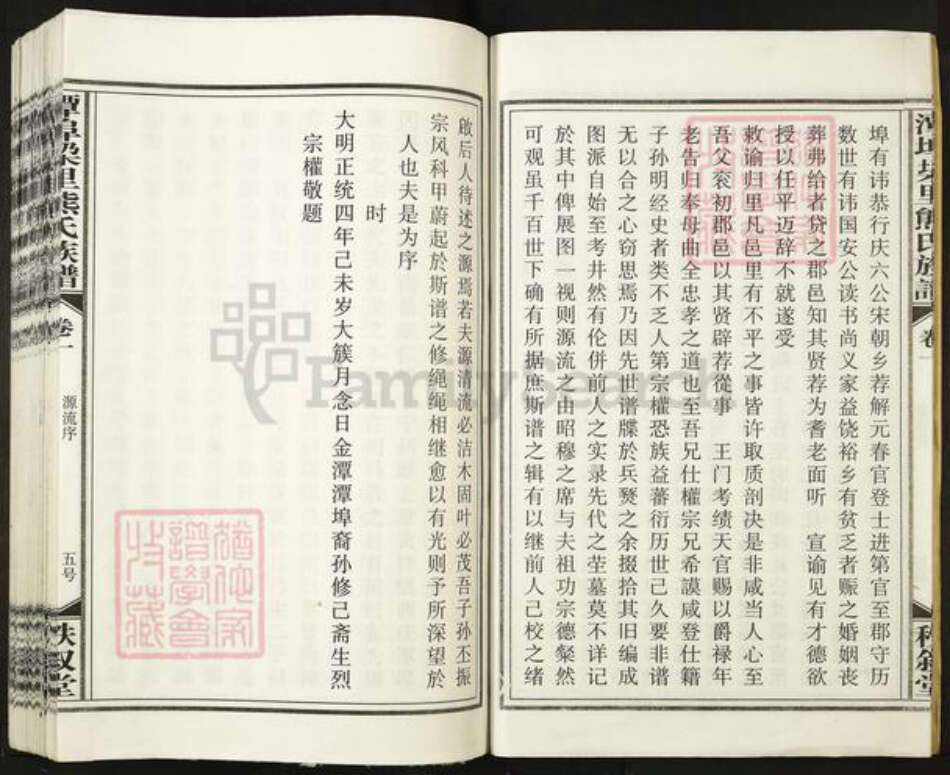 埠有讳恭行庆六公宋朝乡荐解元春官登士进第官至郡守历
数世有讳国安公读书尚义家益饶裕乡有贫乏者赈之婚姻丧
葬弗给者贷之郡邑知其贤荐为耆老面听 宣谕见有才德欲
授以任平迈辞不就遂受
敕谕归里凡邑里有不平之事皆许取质剖决是非咸当人心至
吾父衮初郡邑以其贤辟荐從事 王门考绩天官赐以爵禄年
老告归奉母曲全忠孝之道也至吾兄仕權宗兄希謨咸登仕籍
子孙明经史者类不乏人第宗權恐族益蕃衍历世己久要非谱
无以合之心窃思焉乃因先世谱牒於兵燹之余掇拾其旧编成
图派自始至考井然有伦併前人之实录先代之茔墓莫不详记
於其中俾展图一视则源流之由昭穆之席与夫祖功宗德粲然
可观虽千百世下确有所据庶斯谱之辑有以继前人己校之绪
啟后人待述之源焉若夫源清流必洁木固叶必茂吾子孙丕振
宗风科甲蔚起於斯谱之修绳绳相继愈以有光则予所深望於
人也夫是为序
时
大明正统四年己未岁大簇月念日金潭潭埠裔孙修己斋生烈
宗權敬题
潭埠梁里熊氏族譜
卷一
源流序
五号
秩叙堂
熊氏族譜
卷一
秩叙堂
FamilySearch